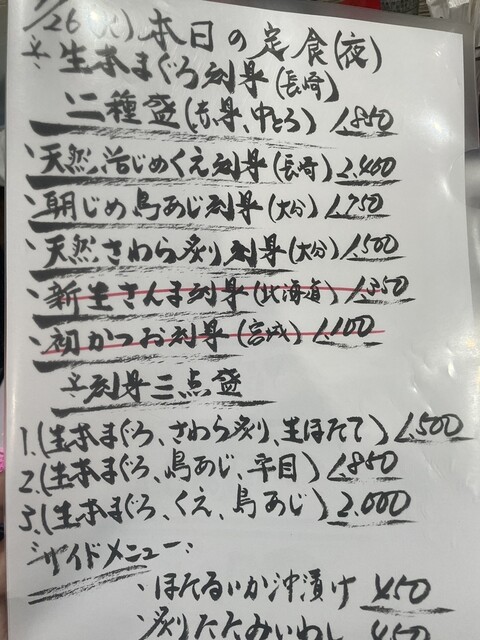 /26(火)本日の定食(夜)
☆生本まぐろ刺身(長崎)
二種盛(赤身、中とろ) 1,850
・天然活じめくえ刺身(長崎) 2,400
・朝じめ島あじ刺身(大分) 1,750
・天然さわら炙り刺身(大分) 1,500
・新生さんま刺身(北海道) 1,350
・初かつお刺身(宮城) 1,100
☆刺身三点盛
1.(生本まぐろ、さわら炙り、生ほたて) 1,500
2.(生本まぐろ、島あじ、平目) 1,850
3.(生本まぐろ、くえ、島あじ) 2,000
サイドメニュー:
・ほたるいか沖漬け 450
・炙りたたみいわし 450